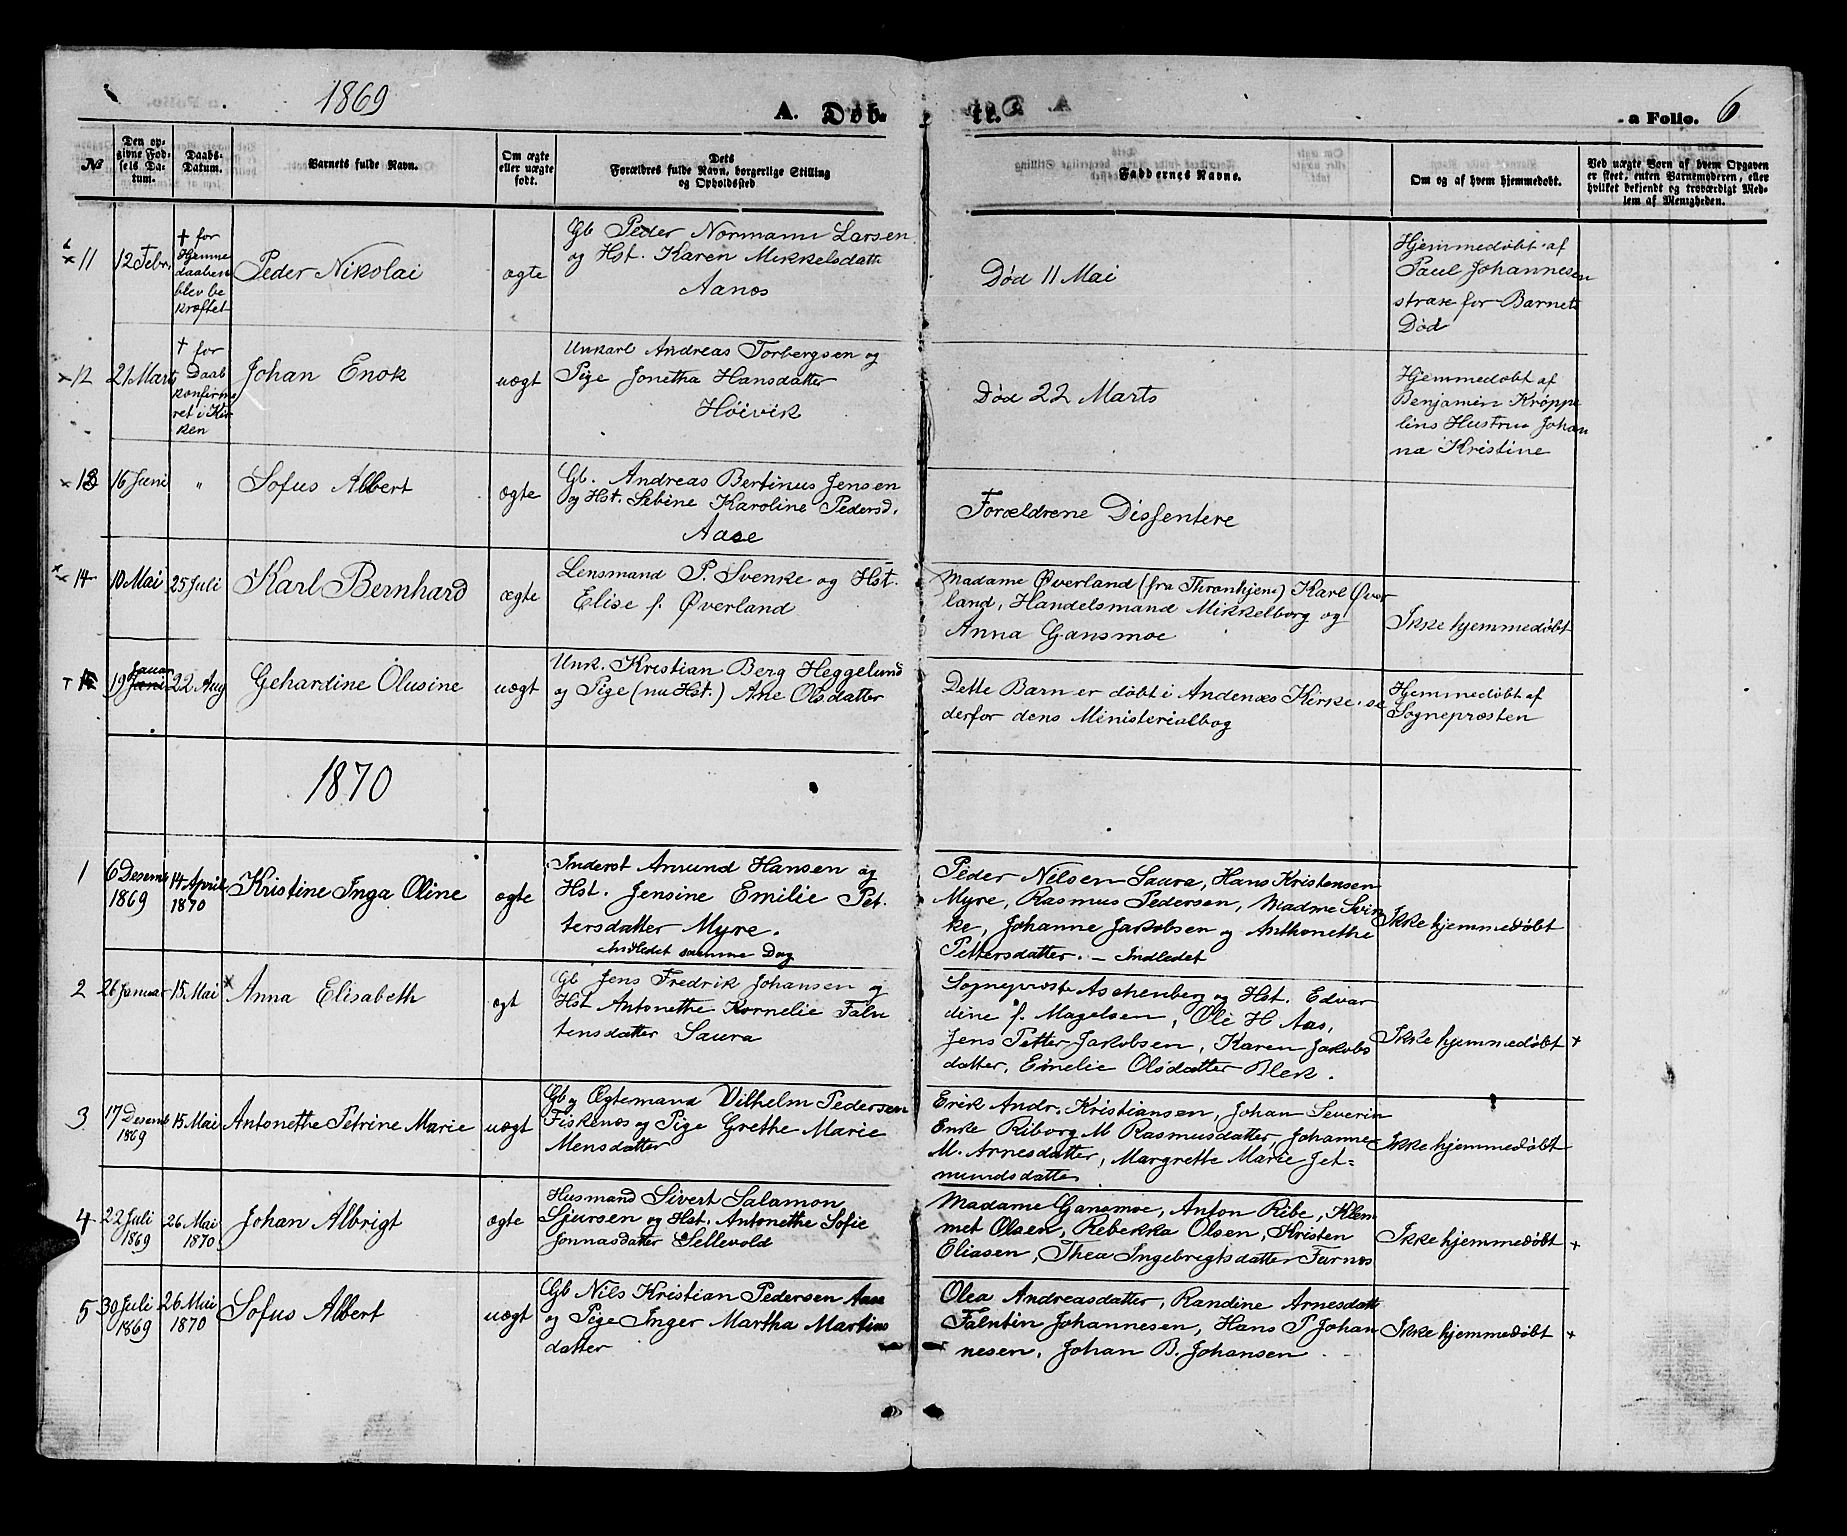 1869
A. Døb-
te.
a Folio. 6
№
Den op-
givne Fød-
sels Da-
tum.
Daabs-
Datum.
Barnets fulde Navn.
Om ægte
eller uægte
født.
Dets
Forældres fulde Navn, borgerlige Stilling
og Opholdssted
Faddernes Navne.
Om og af hvem hjemmedøbt.
Ved uægte Børn af hvem Opgaven
er skeet, enten Barnemoderen, eller
hvilket bekjendt og troværdigt Med-
lem af Menigheden.
11
12 Febr.
† for
Hjemme
daaben
blev be
kræftet
Peder Nikolai
ægte
Gb Peder Normann Larsen
og Hst. Karen Mikkelsdatt
Aanes
Død 11 Mai
Hjemmedøbt af
Paul Johannesen
strax for Barnets
Død
12
21 Marts
† for
Daab
konfirme
ret i Kir
ken
Johan Enok
uægt
Unkarl Andreas Torbergsen og
Pige Jonetha Hansdatter
Høivik
Død 22 Marts
Hjemmedøbt af
Benjamin Krøppe
lins Hustru Johan
na Kristine
13
16 Juni
"
Sofus Albert
ægte
Gb. Andreas Bertinus Jensen
og Hst. Sebine Karoline Pedersd.
Aase
Forældrene Dissentere
14
10 Mai
25 Juli
Karl Bernhard
ægte
Lensmand P. Svenke og Hst.
Elise f. Øverland
Madame Øverland (fra Thronhjem) Karl Øver
land, Handelsmand Mikkelborg og
Anna Gansmoe
Ikke hjemmedøbt
15
19 Januar
22 Aug
Gehardine Olusine
uægt
Unk. Kristian Berg Heggelund
og Pige (nu Hst.) Ane Olsdatter
Dette Barn er døbt i Andenæs Kirke. se
derfor dens Ministerialbog
Hjemmedøbt af
Sognepræsten
1870
1
6 Desemb
1869
14 April
1870
Kristine Inga Oline
ægte
Inderst Amund Hansen og
Hst. Jensine Emilie Pet-
tersdatter Myre.
Indledet samme Dag
Peder Nilsen Saura, Hans Kristensen
Myre, Rasmus Pedersen, Madme Svin
ke, Johanne Jakobsen og Anthonethe
Pettersdatter. — Indledet
Ikke hjemmedøbt
2
26 Januar
15 Mai
Anna Elisabeth
ægt
Gb Jens Fredrik Johansen og
Hst Antonethe Kornelie Faln
tensdatter Saura
Sognepræst Aschenberg og Hst. Edvar
dine f. Magelsen, Ole H Aas,
Jens Petter Jakobsen, Karen Jakobs
datter, Emelie Olsdatter Blek.
Ikke hjemmedøbt +
3
17 Desemb
1869
15 Mai
Antonethe Petrine Marie
uægt
Gb og Ægtemand Vilhelm Pedersen
Fiskenes og Pige Grethe Marie
Mensdatter
Erik Andr. Kristiansen, Johan Severin
Enke Riborg M Rasmusdatter, Johanne
M. Arnesdatter, Margrethe Marie Jet=
mundsdatter
Ikke hjemmedøbt
4
22 Juli
1869
26 Mai
1870
Johan Albrigt
ægte
Husmand Sivert Salamon
Sjursen og Hst. Antonethe Sofie
Jonnasdatter Sellevold
Madame Gansmoe, Anton Ribe, Klem
met Olsen, Rebekka Olsen, Kristen
Eliasen, Thea Ingebrigtsdatter Furnes
Ikke hjemmedøbt +
5
30 Juli
1869
26 Mai
1870
Sofus Albert
uægt
Gb Nils Kristian Pedersen Aase
og Pige Inger Martha Martins
datter
Olea Andreasdatter, Randine Arnesdatt
Falntin Johannesen, Hans P Johan
nesen, Johan B. Johansen
Ikke hjemmedøbt +